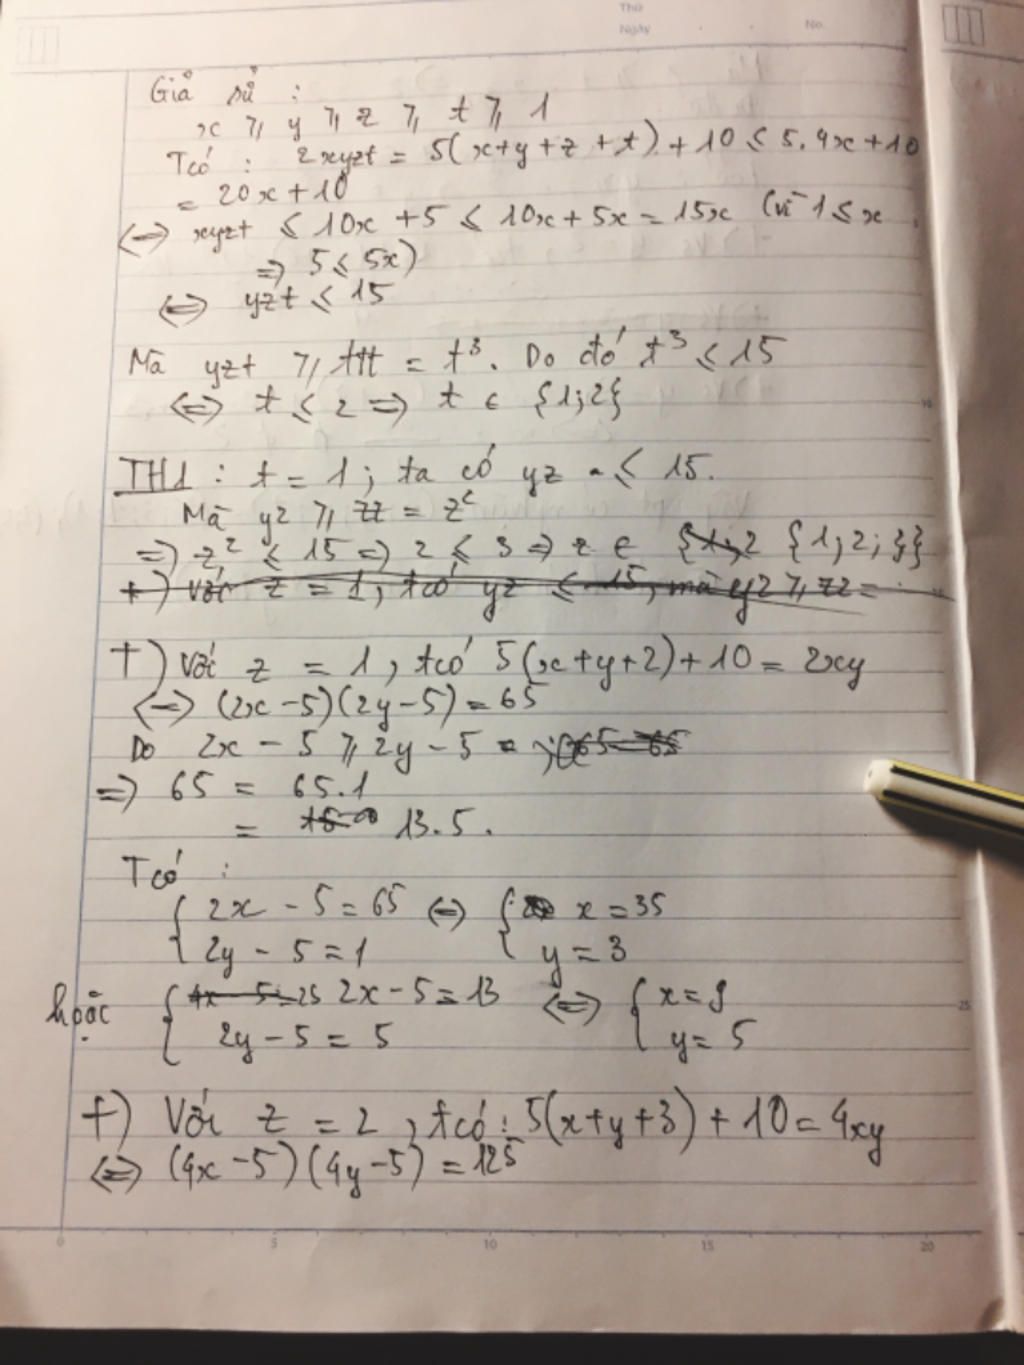 Thứ
Ngày . . No.
Giả sử :
x ⩾ y ⩾ z ⩾ t ⩾ 1
Tcó : 2xyzt = 5(x+y+z+t) + 10 ⩽ 5.4x+10
= 20x+10
⇔ xyzt ⩽ 10x+5 ⩽ 10x+5x = 15x (vì 1⩽x
⇒ 5⩽5x)
⇔ yzt ⩽ 15
Mà yzt ⩾ ttt = t³. Do đó t³ ⩽ 15
⇔ t ⩽ 2 ⇒ t ∈ {1;2}
TH1 : t = 1 ; ta có yz ⩽ 15.
Mà yz ⩾ zz = z²
⇒ z² ⩽ 15 ⇒ z ⩽ 3 ⇒ z ∈ {1;2 {1;2;3}
+) Với z = 1, tcó yz ⩽ 15, mà yz ⩾ zz =
+) Với z = 1, tcó 5(x+y+2)+10 = 2xy
⇔ (2x-5)(2y-5) = 65
Do 2x - 5 ⩾ 2y - 5
⇒ 65 = 65.1
= 13.5.
Tcó :
{ 2x - 5 = 65 ⇔ { x = 35
2y - 5 = 1 y = 3
hoặc { 2x - 5 = 13 ⇔ { x = 9
2y - 5 = 5 y = 5
+) Với z = 2, tcó : 5(x+y+3) + 10 = 4xy
⇔ (4x-5)(4y-5) = 125
25
0 5 10 15 20